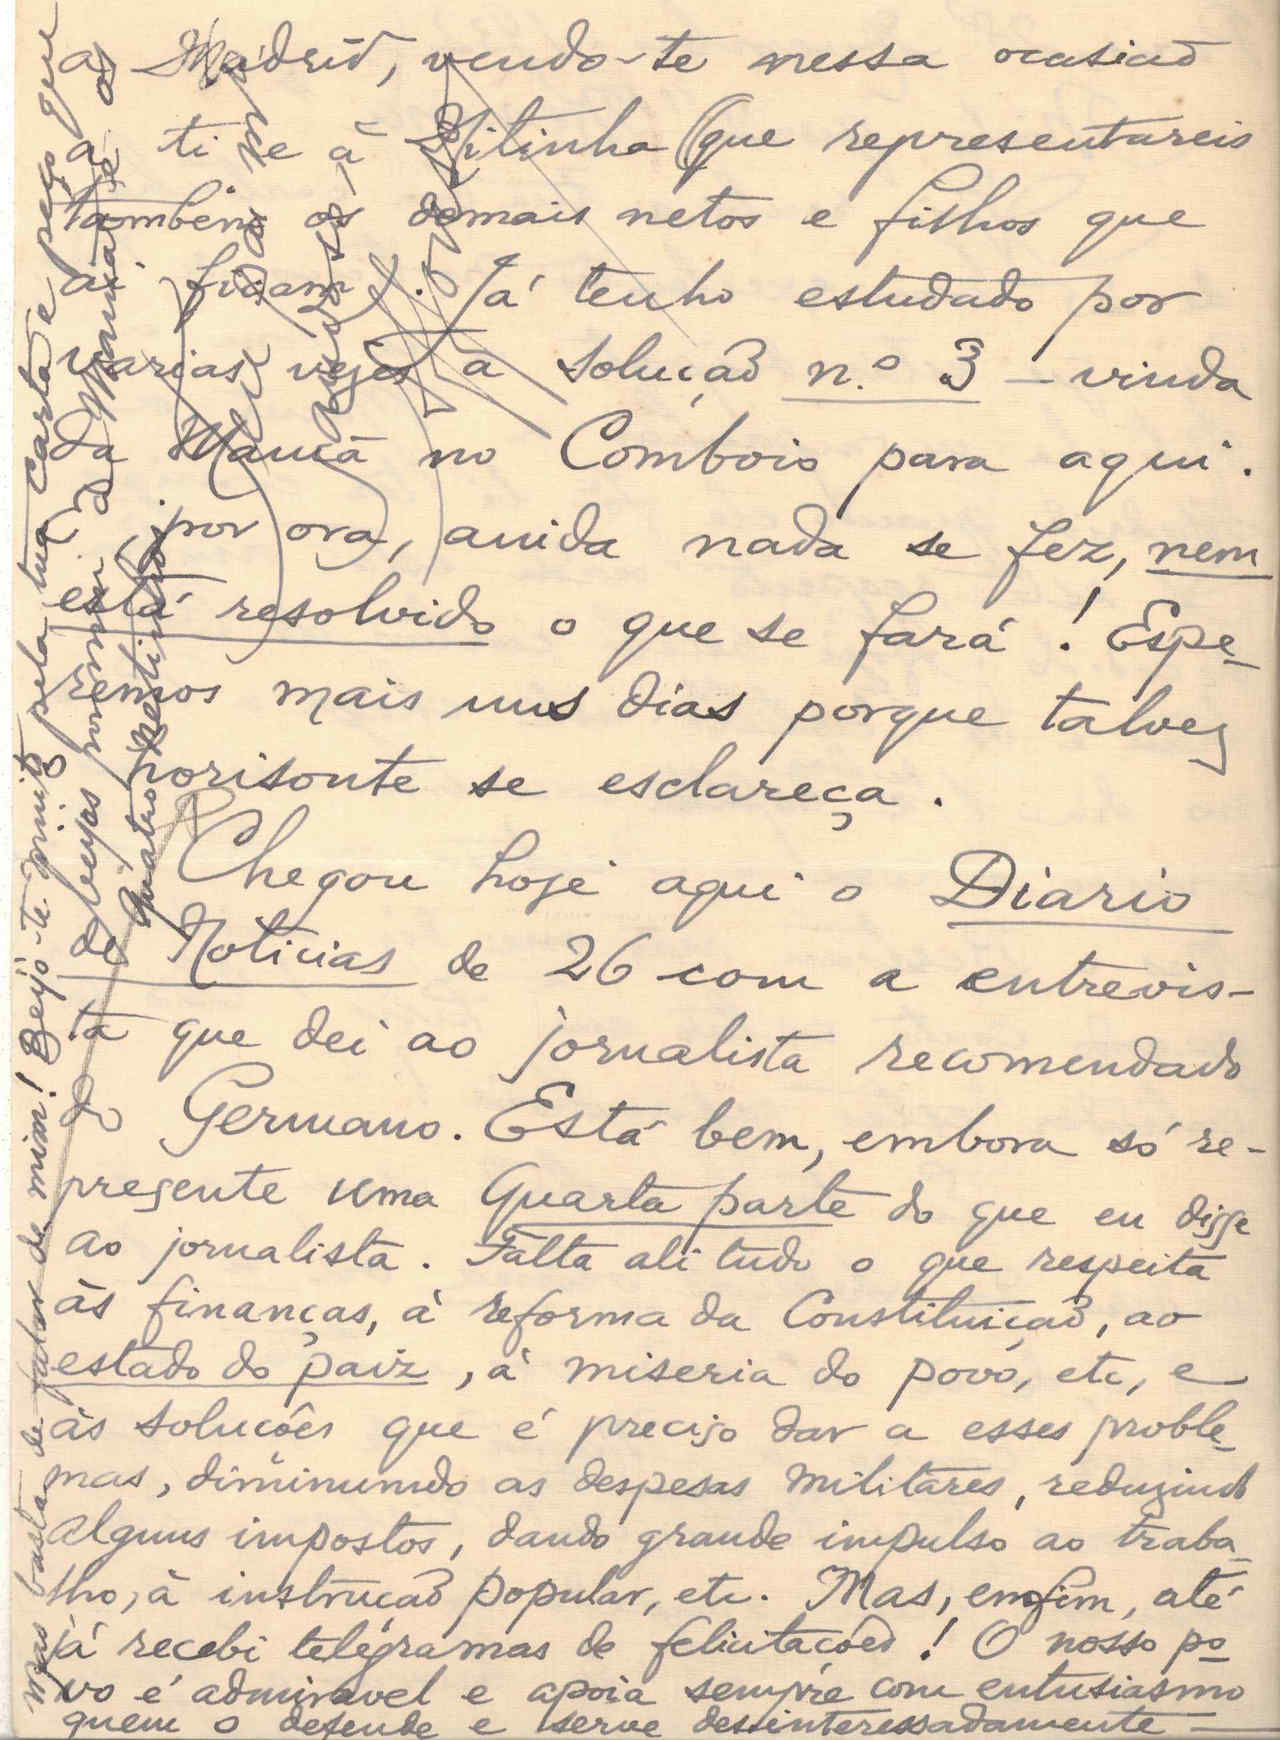 a Madrid, vendo-te nessa ocasião
a ti e à Zitinha (que representareis
tambem os demais netos e filhos que
aí ficam). Já tenho estudado por
varias vejes a solução n.º 3 - vinda
da Mamã no Comboio para aqui.
E, por ora, ainda nada se fez, nem
está resolvido o que se fará! Espe-
remos mais uns dias porque talvez
horisonte se esclareça.
Chegou hoje aqui o Diario
de Noticias de 26 com a entrevis-
ta que dei ao jornalista recomendado
do Germano. Está bem, embora só re-
presente uma quarta parte do que eu disse
ao jornalista. Falta ali tudo o que respeita
às finanças, à reforma da Constituição, ao
estado do paiz, à miseria do povo, etc, e
às soluções que é preciso dar a esses proble-
mas, diminuindo as despesas militares, reduzindo
alguns impostos, dando grande impulso ao traba-
lho, à instrução popular, etc. Mas, emfim, até
já recebi telégramas de felicitações! O nosso po-
vo é admiravel e apoia sempre com entusiasmo
quem o defende e serve desinteressadamente -
Mas basta de falar de mim! Beijo-te muito pela tua carta e peço que
dê beijos por mim à Mamã e aos
quatro netinhos